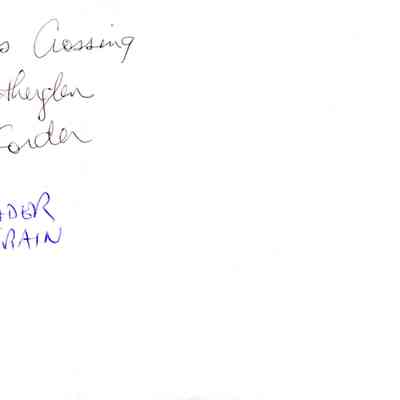 s Crossing
therglen
Corder
ADER
RAIN